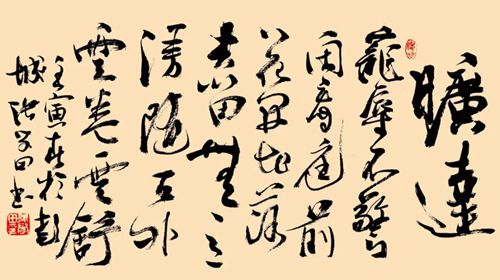 曠達
寵辱不驚
閑看庭前
花開花落
去留無意
漫随天外
雲卷雲舒
壬寅春於彭
城張田書